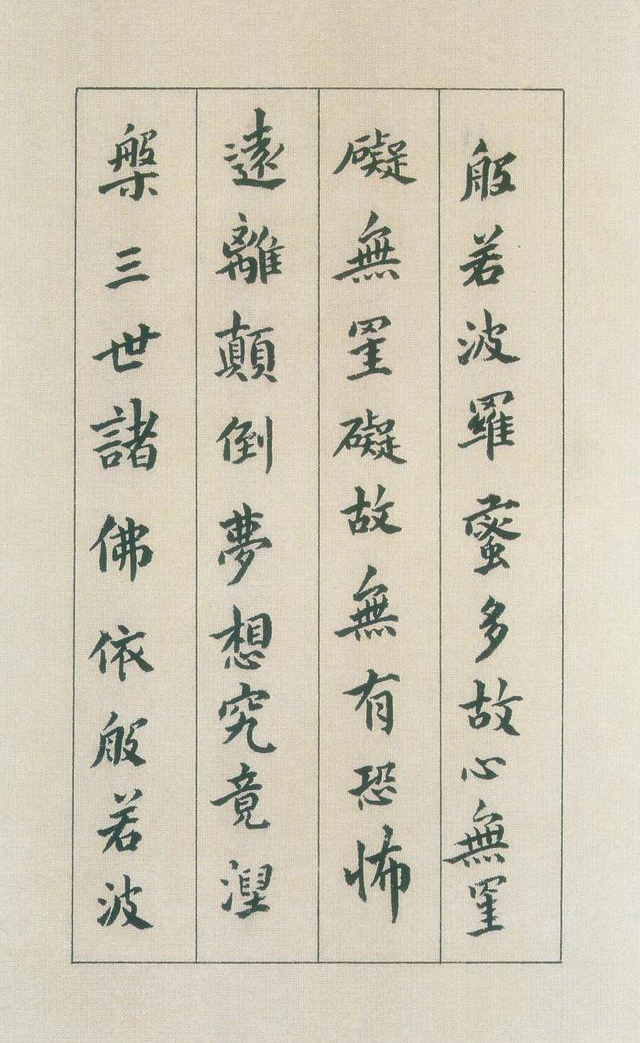 般若波羅蜜多故心無罣
礙無罣礙故無有恐怖
遠離顛倒夢想究竟涅
槃三世諸佛依般若波